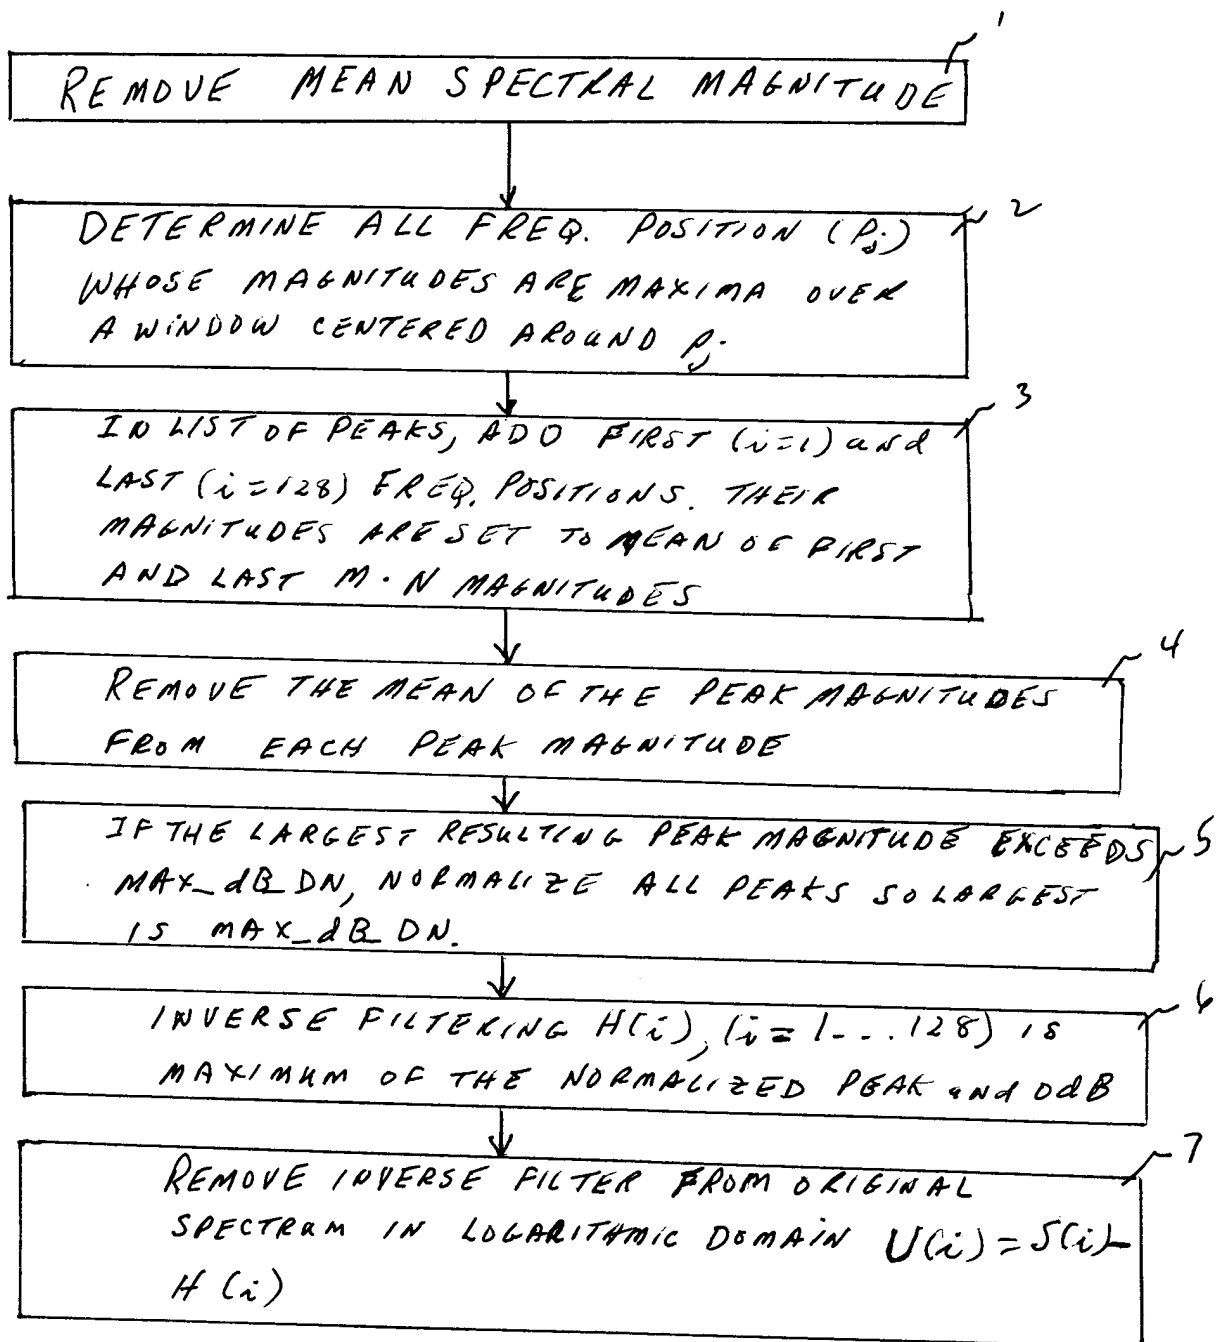 1
REMOVE MEAN SPECTRAL MAGNITUDE
2
DETERMINE ALL FREQ. POSITION (Pj)
WHOSE MAGNITUDES ARE MAXIMA OVER
A WINDOW CENTERED AROUND Pj.
3
IN LIST OF PEAKS, ADD FIRST (i=1) and
LAST (i=128) FREQ. POSITIONS. THEIR
MAGNITUDES ARE SET TO MEAN OF FIRST
AND LAST M·N MAGNITUDES
4
REMOVE THE MEAN OF THE PEAK MAGNITUDES
FROM EACH PEAK MAGNITUDE
5
IF THE LARGEST RESULTING PEAK MAGNITUDE EXCEEDS
MAX_dB_DN, NORMALIZE ALL PEAKS SO LARGEST
IS MAX_dB_DN.
6
INVERSE FILTERING H(i), (i=1--..128) IS
MAXIMUM OF THE NORMALIZED PEAK and 0dB
7
REMOVE INVERSE FILTER FROM ORIGINAL
SPECTRUM IN LOGARITHMIC DOMAIN U(i)=S(i)–
H(i)